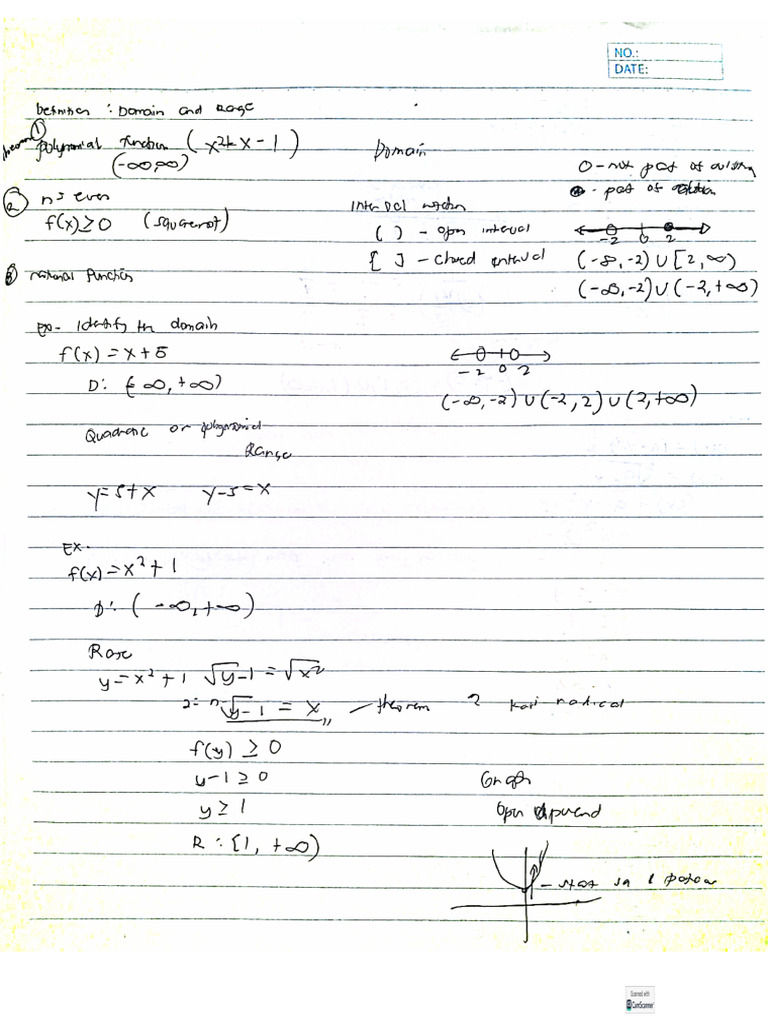 NO.:
DATE:
Definition : Domain and Range
Theorem ① polynomial function (x²+x-1)
(-∞,∞)
Domain
O - not part of solution
● - part of solution
② n = even
f(x) ≥ 0 (squareroot)
Interval notation
( ) - open interval
[ ] - closed interval
-2 0 2
(-∞,-2) ∪ [2,∞)
(-∞,-2) ∪ (-2,+∞)
③ rational function
Ex- Identify the domain
f(x) = x+5
D: (-∞,+∞)
-2 0 2
(-∞,-2) ∪ (-2,2) ∪ (2,+∞)
Quadratic or polynomial
Range
y=5+x y-5=x
Ex.
f(x) = x²+1
D: (-∞,+∞)
Range
y = x²+1 √y-1 = √x²
2=n √y-1 = x - theorem 2 kasi radical
f(y) ≥ 0
y-1 ≥ 0
y ≥ 1
R : [1, +∞)
Graph
Open upward
- start sa 1 pataas
Scanned with
CamScanner